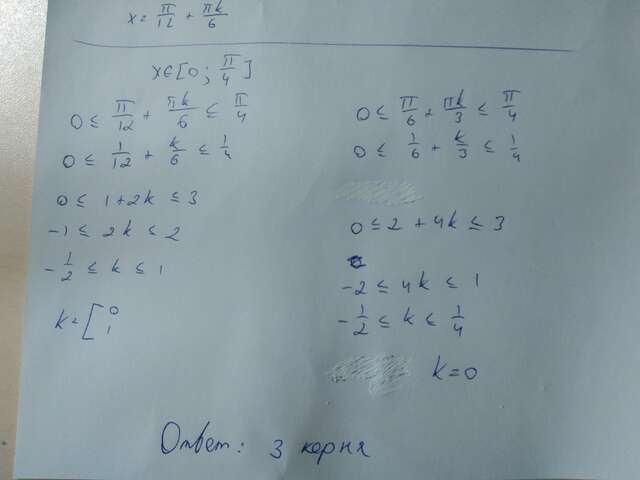 x = π/12 + πk/6
x∈[0; π/4]
0 ≤ π/12 + πk/6 ≤ π/4
0 ≤ 1/12 + k/6 ≤ 1/4
0 ≤ 1+2k ≤ 3
-1 ≤ 2k ≤ 2
-1/2 ≤ k ≤ 1
k = [ 0 1
0 ≤ π/6 + πk/3 ≤ π/4
0 ≤ 1/6 + k/3 ≤ 1/4
0 ≤ 2 + 4k ≤ 3
-2 ≤ 4k ≤ 1
-1/2 ≤ k ≤ 1/4
k = 0
Ответ: 3 корня